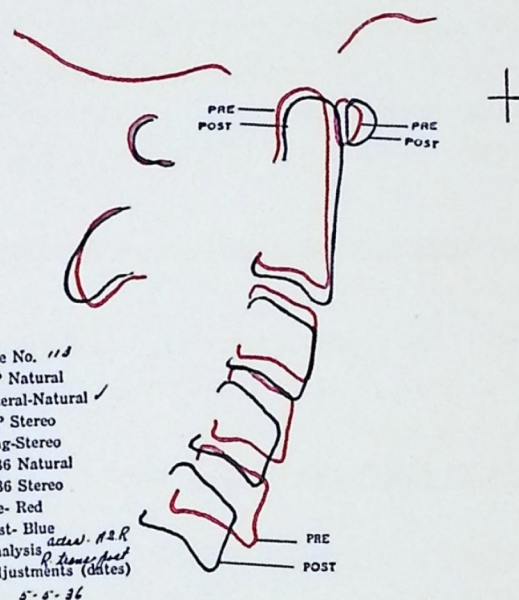 PRE
POST
PRE
POST
e No. 113
P Natural
eral-Natural ✓
P Stereo
g-Stereo
36 Natural
36 Stereo
e- Red
st- Blue
nalysis
R. trans. post
justments (dates)
5-5-36
PRE
POST